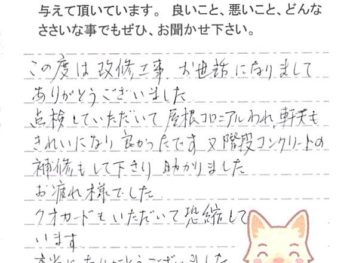 与えて頂いています。 良いこと、悪いこと、どんな
ささいな事でもぜひ、お聞かせ下さい。
この度は改修工事 お世話になりまして
ありがとうございました
点検していただいて屋根コロニアルわれ、軒天も
きれいになり良かったです 又階段コンクリートの
補修もして下さり 助かりました
お疲れ様でした
クオカードもいただいて恐縮して
います
本当にありがとうございました